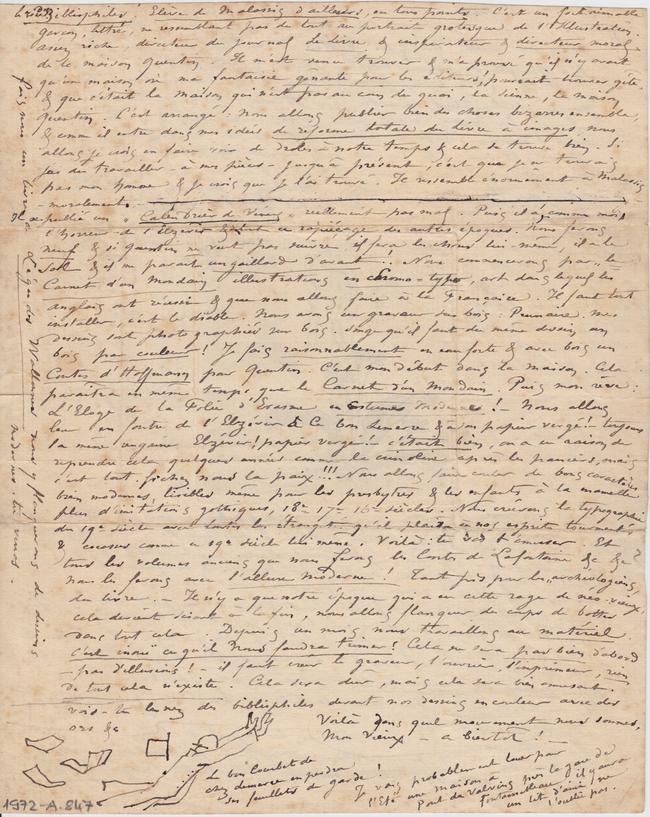 bibliophiles ! Elève de Malassis d'ailleurs, en tous points. C'est un fort aimable
garçon, lettré, ne ressemblant pas du tout au portrait grotesque de l'Illustration
assez riche, directeur du journal le livre, & inspirateur & directeur moral
de la maison Quentin. Il m'est venu trouver & m'a prouvé qu'il n'y avait
qu'une maison où ma fantaisie gênante pour les éditeurs ! pouvait trouver gîte,
& que c'était la maison qui n'est pas au coin du quai, la sienne, la maison
Quentin. C'est arrangé : nous allons publier bien des choses bizarres ensemble,
& comme il entre dans mes idées de réforme totale du livre à images nous
allons je crois en faire voir de drôles à notre temps & cela se trouve bien. Si
pas du travailler - à mes pièces - jusqu'à présent, c'est que je ne trouvais
pas mon homme & je crois que je l'ai trouvé. Il ressemble énormément à Malassis
- moralement.
Il a publié un « Calendrier de Vénus » réellement pas mal. Puis il a comme moi
l'horreur de l'Elzévir & de ce rapiéçage des autres époques. Nous ferons
neuf & si Quentin ne veut pas suivre, il fera les choses lui-même, il a le
sac & il me parait un gaillard d'avant ! Nous commencerons par « le
Carnet d'un Mondain » illustrations en Cromo-typie, art dans lequel les
anglais ont réussi & que nous allons faire à la Française. Il faut tout
installer, c'est le diable. Nous avons un graveur sur bois : Mes
dessins sont photographiés sur bois. Songe qu'il faut du même dessin un
bois par couleur ! Je fais raisonnablement en eau forte & avec bois un
Contes d'Hoffmann pour Quentin. C'est mon début dans la maison. Cela
paraîtra en même temps que le Carnet d'un Mondain. Puis mon rêve :
L'Eloge de la Folie d'Erasme en costumes modernes ! Nous allons
l'Elzévir & Ce bon Lemerre & son papier vergé ! toujours
la même rengaine Elzévir ! papier vergé ! c'était bien, on a eu raison de
reprendre cela quelques années comme la crinoline après les paniers, mais
c'est tout. fichez nous la paix !!! Nous allons faire couler de bons caractères
bien modernes, lisibles même pour les presbytes & les enfants à la mamelle
plus d'imitations gothiques, 18e 17e 16e siècles. Nous créerons la typographie
du 19e siècle avec toutes les étrangetés qu'il plaira à nos esprits tourmentés
& cocasses comme ce 19e siècle lui même. Voilà : te Et
tous les volumes anciens que nous ferons les Contes de Lafontaine &c &c ?
nous les ferons avec l'allure Moderne ! Tant pis pour les archéologiens
du livre. - Il n'y a que notre époque qui a eu cette rage de néo-vieux,
cela devient à la fin, nous allons flanquer des coups de bottes
dans tout cela. Depuis un mois nous travaillons au matériel.
C'est inouï ce qu'il nous faudra trimer ! Cela ne sera pas bien d'abord
- pas d'illusions ! - il faut créer le graveur, l'ouvrier, l'imprimeur, rien
de tout cela n'existe. Cela sera dur, mais cela sera bien amusant.
vois-tu le nez des bibliophiles devant nos dessins en couleur avec des
ors &c
Voilà dans quel mouvement nous sommes,
Mon Vieux - a bientôt ! -
Le bon Courbet de
chez Lemerre en perdra
ses feuillets de garde !
Je vais probablement louer pour
l'Eté une maison à
Pont de Valvins près la gare de
Fontainebleau, il y aura
un lit d'ami, que
l'oublie pas.
fais nous un livre
nous y flanquerons de dessins
modernes
1972-A.847